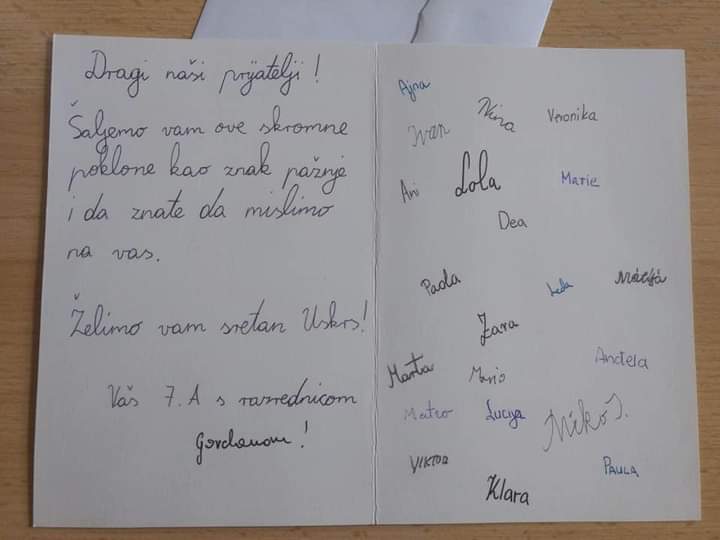 Dragi naši prijatelji!
Šaljemo vam ove skromne
poklone kao znak pažnje
i da znate da mislimo
na vas.
Želimo vam sretan Uskrs!
Vaš 7. A s razrednicom
Gordanom!
Ajna
Ivan Nina Veronika
Ani Lola Marie
Dea
Paola Leda Matija
Zara
Marta Mario Anđela
Mateo Lucija Niko J.
Viktor Paula
Klara